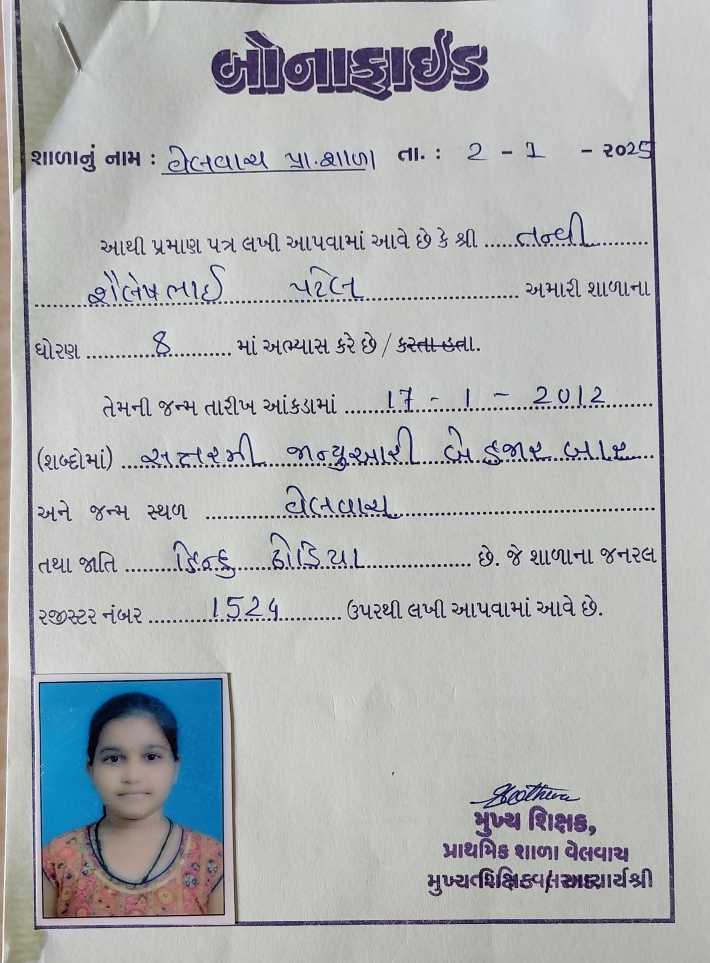 બોનાફાઈડ
શાળાનું નામ : વેલવાચ પ્રા.શાળા તા. : 2 - 1 - ૨૦૨5
આથી પ્રમાણ પત્ર લખી આપવામાં આવે છે કે શ્રી ..... તન્વી ..........
.......... શૈલેષભાઈ .......... પટેલ .......... અમારી શાળાના
ધોરણ .......... 8 .......... માં અભ્યાસ કરે છે / કરતા હતા.
તેમની જન્મ તારીખ આંકડામાં ...... 17 - 1 - 2012 ......
(શબ્દોમાં) ... સત્તરમી જાન્યુઆરી બે હજાર બાર ...
અને જન્મ સ્થળ .......... વેલવાચ ..........
તથા જાતિ ....... હિન્દુ ઢોડિયા .......... છે. જે શાળાના જનરલ
રજીસ્ટર નંબર .......... 1524 .......... ઉપરથી લખી આપવામાં આવે છે.
મુખ્ય શિક્ષક,
પ્રાથમિક શાળા વેલવાચ